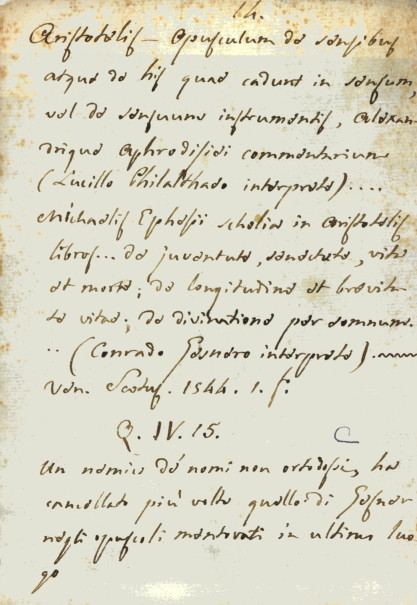 14.
Aristotelis — Opusculum de sensibus
atque de his quae cadunt in sensum,
vel de sensuum instrumentis, Alexan
drique Aphrodisiei commentarium
(Lucillo Philalthaeo interprete)....
Michaelis Ephesii scholia in Aristotelis
libros... de juventute, senectute, vita
et morte; de longitudine et brevita
te vitae; de divinatione per somnum.
.. (Conrado Gesnero interprete).
Ven. Scotus. 1544. 1. f.
Q. IV. 15.
C
Un nemico de' nomi non ortodossi, ha
cancellato più volte quello di Gesner
negli opuscoli mentovati in ultimo luo
go